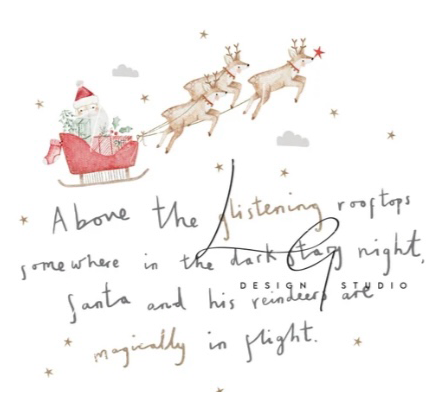 Above the glistening rooftops
somewhere in the dark starry night,
Santa and his reindeers are
magically in flight.
LG
DESIGN STUDIO